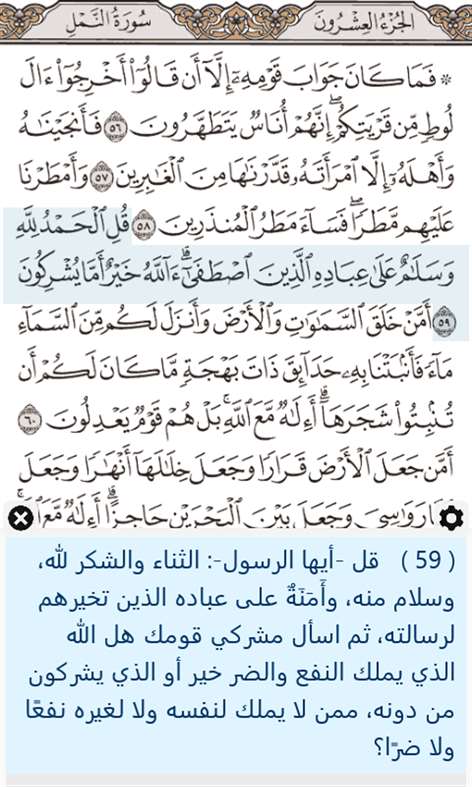 الجُزْءُ العِشْرُونَ سُورَةُ النَّمْلِ
۞ فَمَا كَانَ جَوَابَ قَوْمِهِۦٓ إِلَّآ أَن قَالُوٓا۟ أَخْرِجُوٓا۟ ءَالَ
لُوطٍ مِّن قَرْيَتِكُمْ ۖ إِنَّهُمْ أُنَاسٌ يَتَطَهَّرُونَ ٥٦ فَأَنجَيْنَٰهُ
وَأَهْلَهُۥٓ إِلَّا ٱمْرَأَتَهُۥ قَدَّرْنَٰهَا مِنَ ٱلْغَٰبِرِينَ ٥٧ وَأَمْطَرْنَا
عَلَيْهِم مَّطَرًا ۖ فَسَآءَ مَطَرُ ٱلْمُنذَرِينَ ٥٨ قُلِ ٱلْحَمْدُ لِلَّهِ
وَسَلَٰمٌ عَلَىٰ عِبَادِهِ ٱلَّذِينَ ٱصْطَفَىٰٓ ۗ ءَآللَّهُ خَيْرٌ أَمَّا يُشْرِكُونَ
٥٩ أَمَّنْ خَلَقَ ٱلسَّمَٰوَٰتِ وَٱلْأَرْضَ وَأَنزَلَ لَكُم مِّنَ ٱلسَّمَآءِ
مَآءً فَأَنۢبَتْنَا بِهِۦ حَدَآئِقَ ذَاتَ بَهْجَةٍ مَّا كَانَ لَكُمْ أَن
تُنۢبِتُوا۟ شَجَرَهَآ ۗ أَءِلَٰهٌ مَّعَ ٱللَّهِ ۚ بَلْ هُمْ قَوْمٌ يَعْدِلُونَ ٦٠
أَمَّن جَعَلَ ٱلْأَرْضَ قَرَارًا وَجَعَلَ خِلَٰلَهَآ أَنْهَٰرًا وَجَعَلَ
رَوَٰسِىَ وَجَعَلَ بَيْنَ ٱلْبَحْرَيْنِ حَاجِزًا ۗ أَءِلَٰهٌ
( 59 ) قل -أيها الرسول-: الثناء والشكر لله،
وسلام منه، وأَمَنَةٌ على عباده الذين تخيرهم
لرسالته، ثم اسأل مشركي قومك هل الله
الذي يملك النفع والضر خير أو الذي يشركون
من دونه، ممن لا يملك لنفسه ولا لغيره نفعًا
ولا ضرًا؟